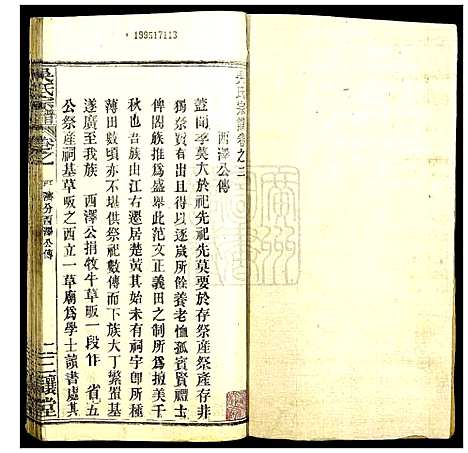 199517113
吳氏宗譜卷之二
西澤公傳
蓋聞孝莫大於祀先祀先莫要於存祭産祭産存非
獨奈賢有後已得以逐歲所餘養老恤孤賓賢禮士
俾闔族推爲盛舉此范文正義田之制所爲掀美千
秋也吾族由江右遷居黃其始未有祠宇卽所藉
薄田數頃亦不堪供祭祀數傳而下族大丁繁置基
遂廣至我族 西澤公捐牧牛草畈一段作 省五
公祭産祠基草畈之西立一草廟爲學士讀書處其
吳氏宗譜
卷之一
濟分西澤公傳
二
三讓堂